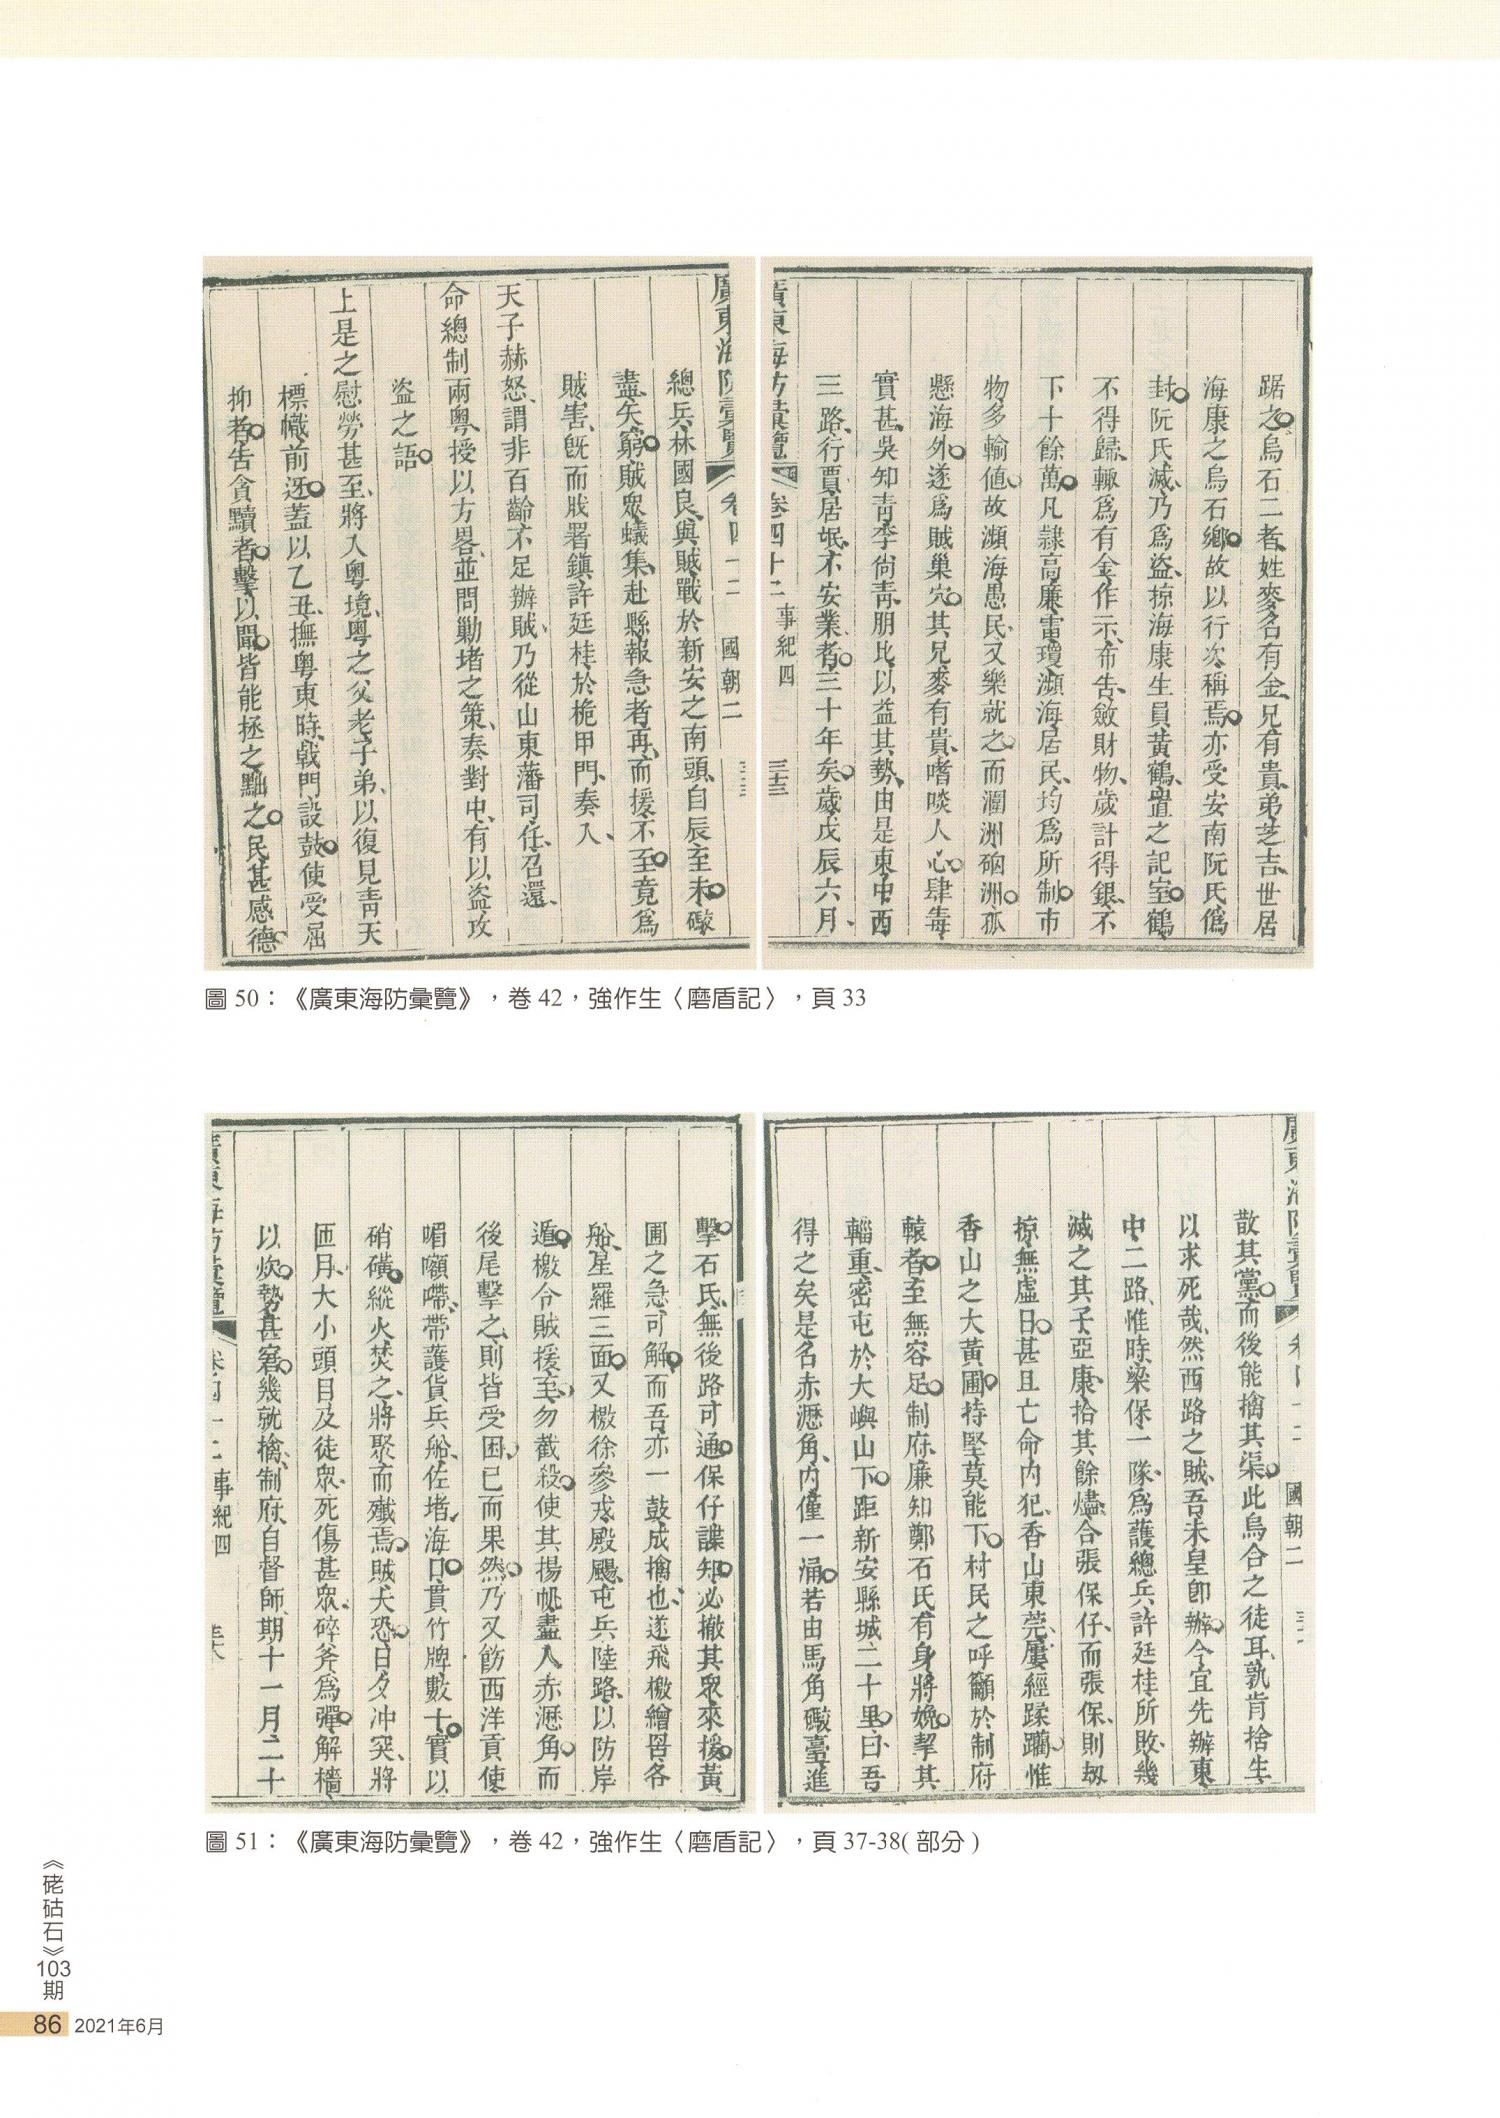 踞之烏石二者姓麥名有金兄有貴弟芝吉世居
海康之烏石鄉故以行次稱焉亦受安南阮氏僞
封阮氏滅乃爲盜掠海康生員黃鶴置之記室鶴
不得歸輙爲有金作示布告斂財物歲計得銀不
下十餘萬凡隷高廉雷瓊瀕海居民均爲所制市
物多輸值故瀕海愚民又樂就之而潿洲硇洲孤
懸海外遂爲賊巢穴其兄麥有貴嗜啖人心肆毒
實甚吳知青李尙青朋比以益其勢由是東中西
三路行賈居氓不安業者三十年矣歲戊辰六月
廣東海防彙覽 卷四十二 事紀四 三十三
廣東海防彙覽 卷四十二 國朝二 三十三
總兵林國良與賊戰於新安之南頭自辰至未礮
盡矣窮賊眾蟻集赴縣報急者再而援不至竟爲
賊害旣而戕署鎭許廷桂於桅甲門奏入
天子赫怒謂非百齡不足辦賊乃從山東藩司任召還
命總制兩粵授以方畧並問勦堵之策奏對中有以盜攻
盜之語
上是之慰勞甚至將入粵境粵之父老子弟以復見青天
標幟前迓蓋以乙丑撫粵東時戟門設鼓使受屈
抑者告貪黷者擊以聞皆能拯之黜之民甚感德
圖 50：《廣東海防彙覽》，卷 42，強作生〈磨盾記〉，頁 33
廣東海防彙覽 卷四十二 國朝二
散其黨而後能擒其渠此烏合之徒耳孰肯捨生
以求死哉然西路之賊吾未皇卽辦今宜先辦東
中二路惟時梁保一隊爲護總兵許廷桂所敗幾
滅之其子亞康拾其餘燼合張保仔而張保則刼
掠無虛日甚且亡命內犯香山東莞屢經蹂躪惟
香山之大黃圃持堅莫能下村民之呼籲於制府
轅者至無容足制府廉知鄭石氏有身將娩挈其
輜重密屯於大嶼山下距新安縣城二十里曰吾
得之矣是名赤瀝角內僅一涌若由馬角礮臺進
擊石氏無後路可通保仔諜知必撤其眾來援黃
圃之急可解而吾亦一鼓成擒也遂飛檄繒罟各
船星羅三面又檄徐參戎殿颺屯兵陸路以防岸
遁檄令賊援至勿截殺使其揚帆盡入赤瀝角而
後尾擊之則皆受困已而果然乃又飭西洋貢使
嗢嚬嘚帶護貨兵船佐堵海口貫竹牌數十實以
硝磺縱火焚之將聚而殲焉賊大恐日夕冲突將
匝月大小頭目及徒眾死傷甚眾碎斧爲彈解檣
以炊勢甚窘幾就擒制府自督師期十一月二十
廣東海防彙覽 卷四十二 事紀四
圖 51：《廣東海防彙覽》，卷 42，強作生〈磨盾記〉，頁 37-38( 部分 )
《硓𥑮石》103期
86 2021年6月